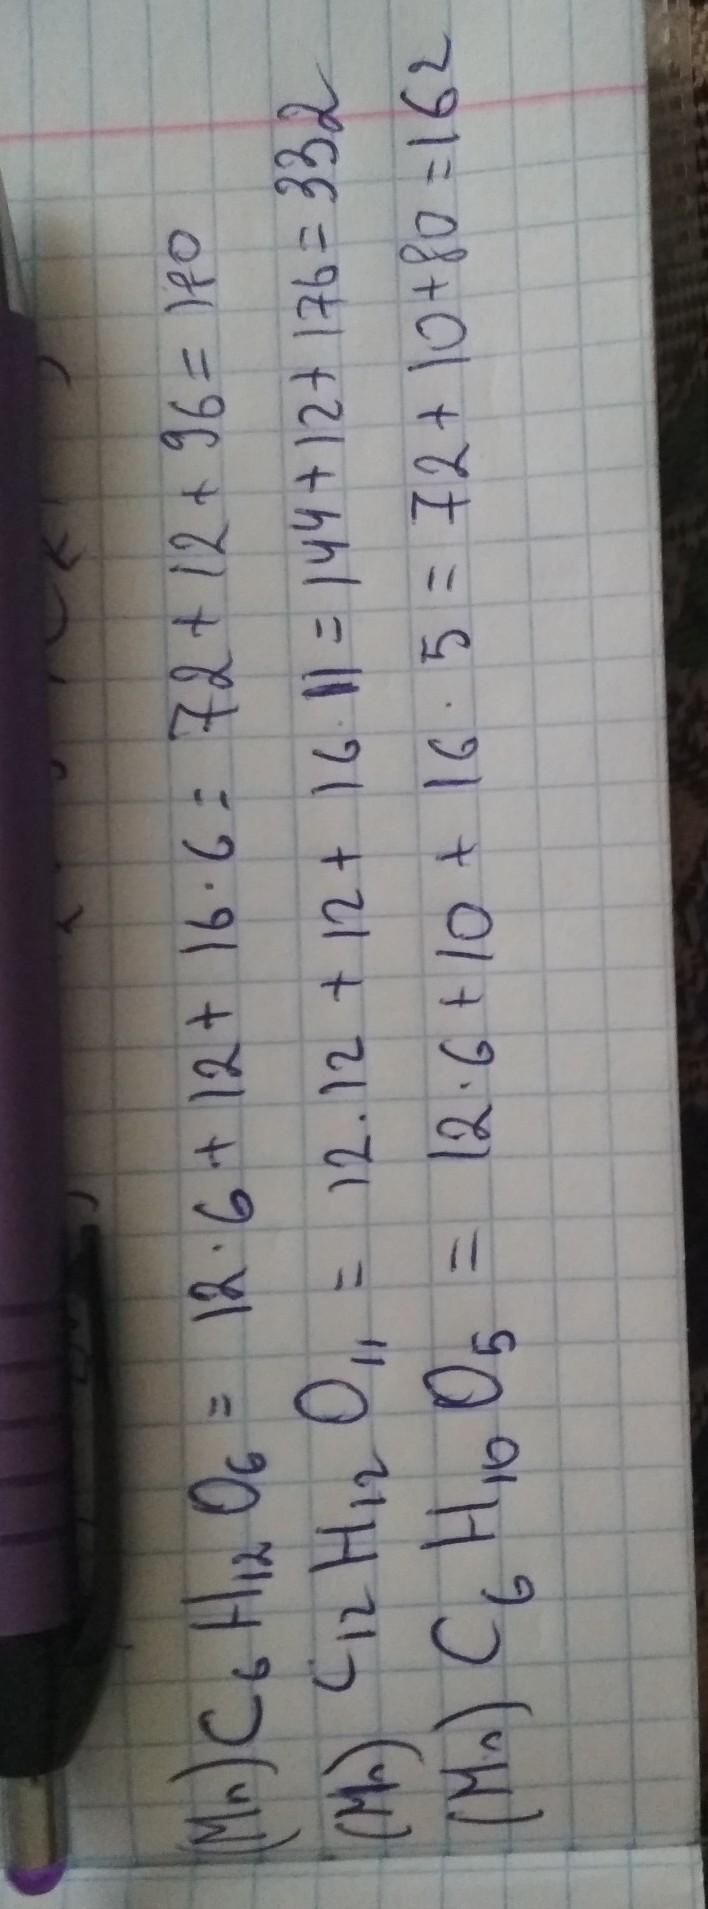 (Mr) C₆H₁₂O₆ = 12·6+12+16·6=72+12+96=180
(Mr) C₁₂H₁₂O₁₁ = 12.12+12+16·11=144+12+176=332
(Mr) C₆H₁₀O₅ = 12·6+10+16·5=72+10+80=162